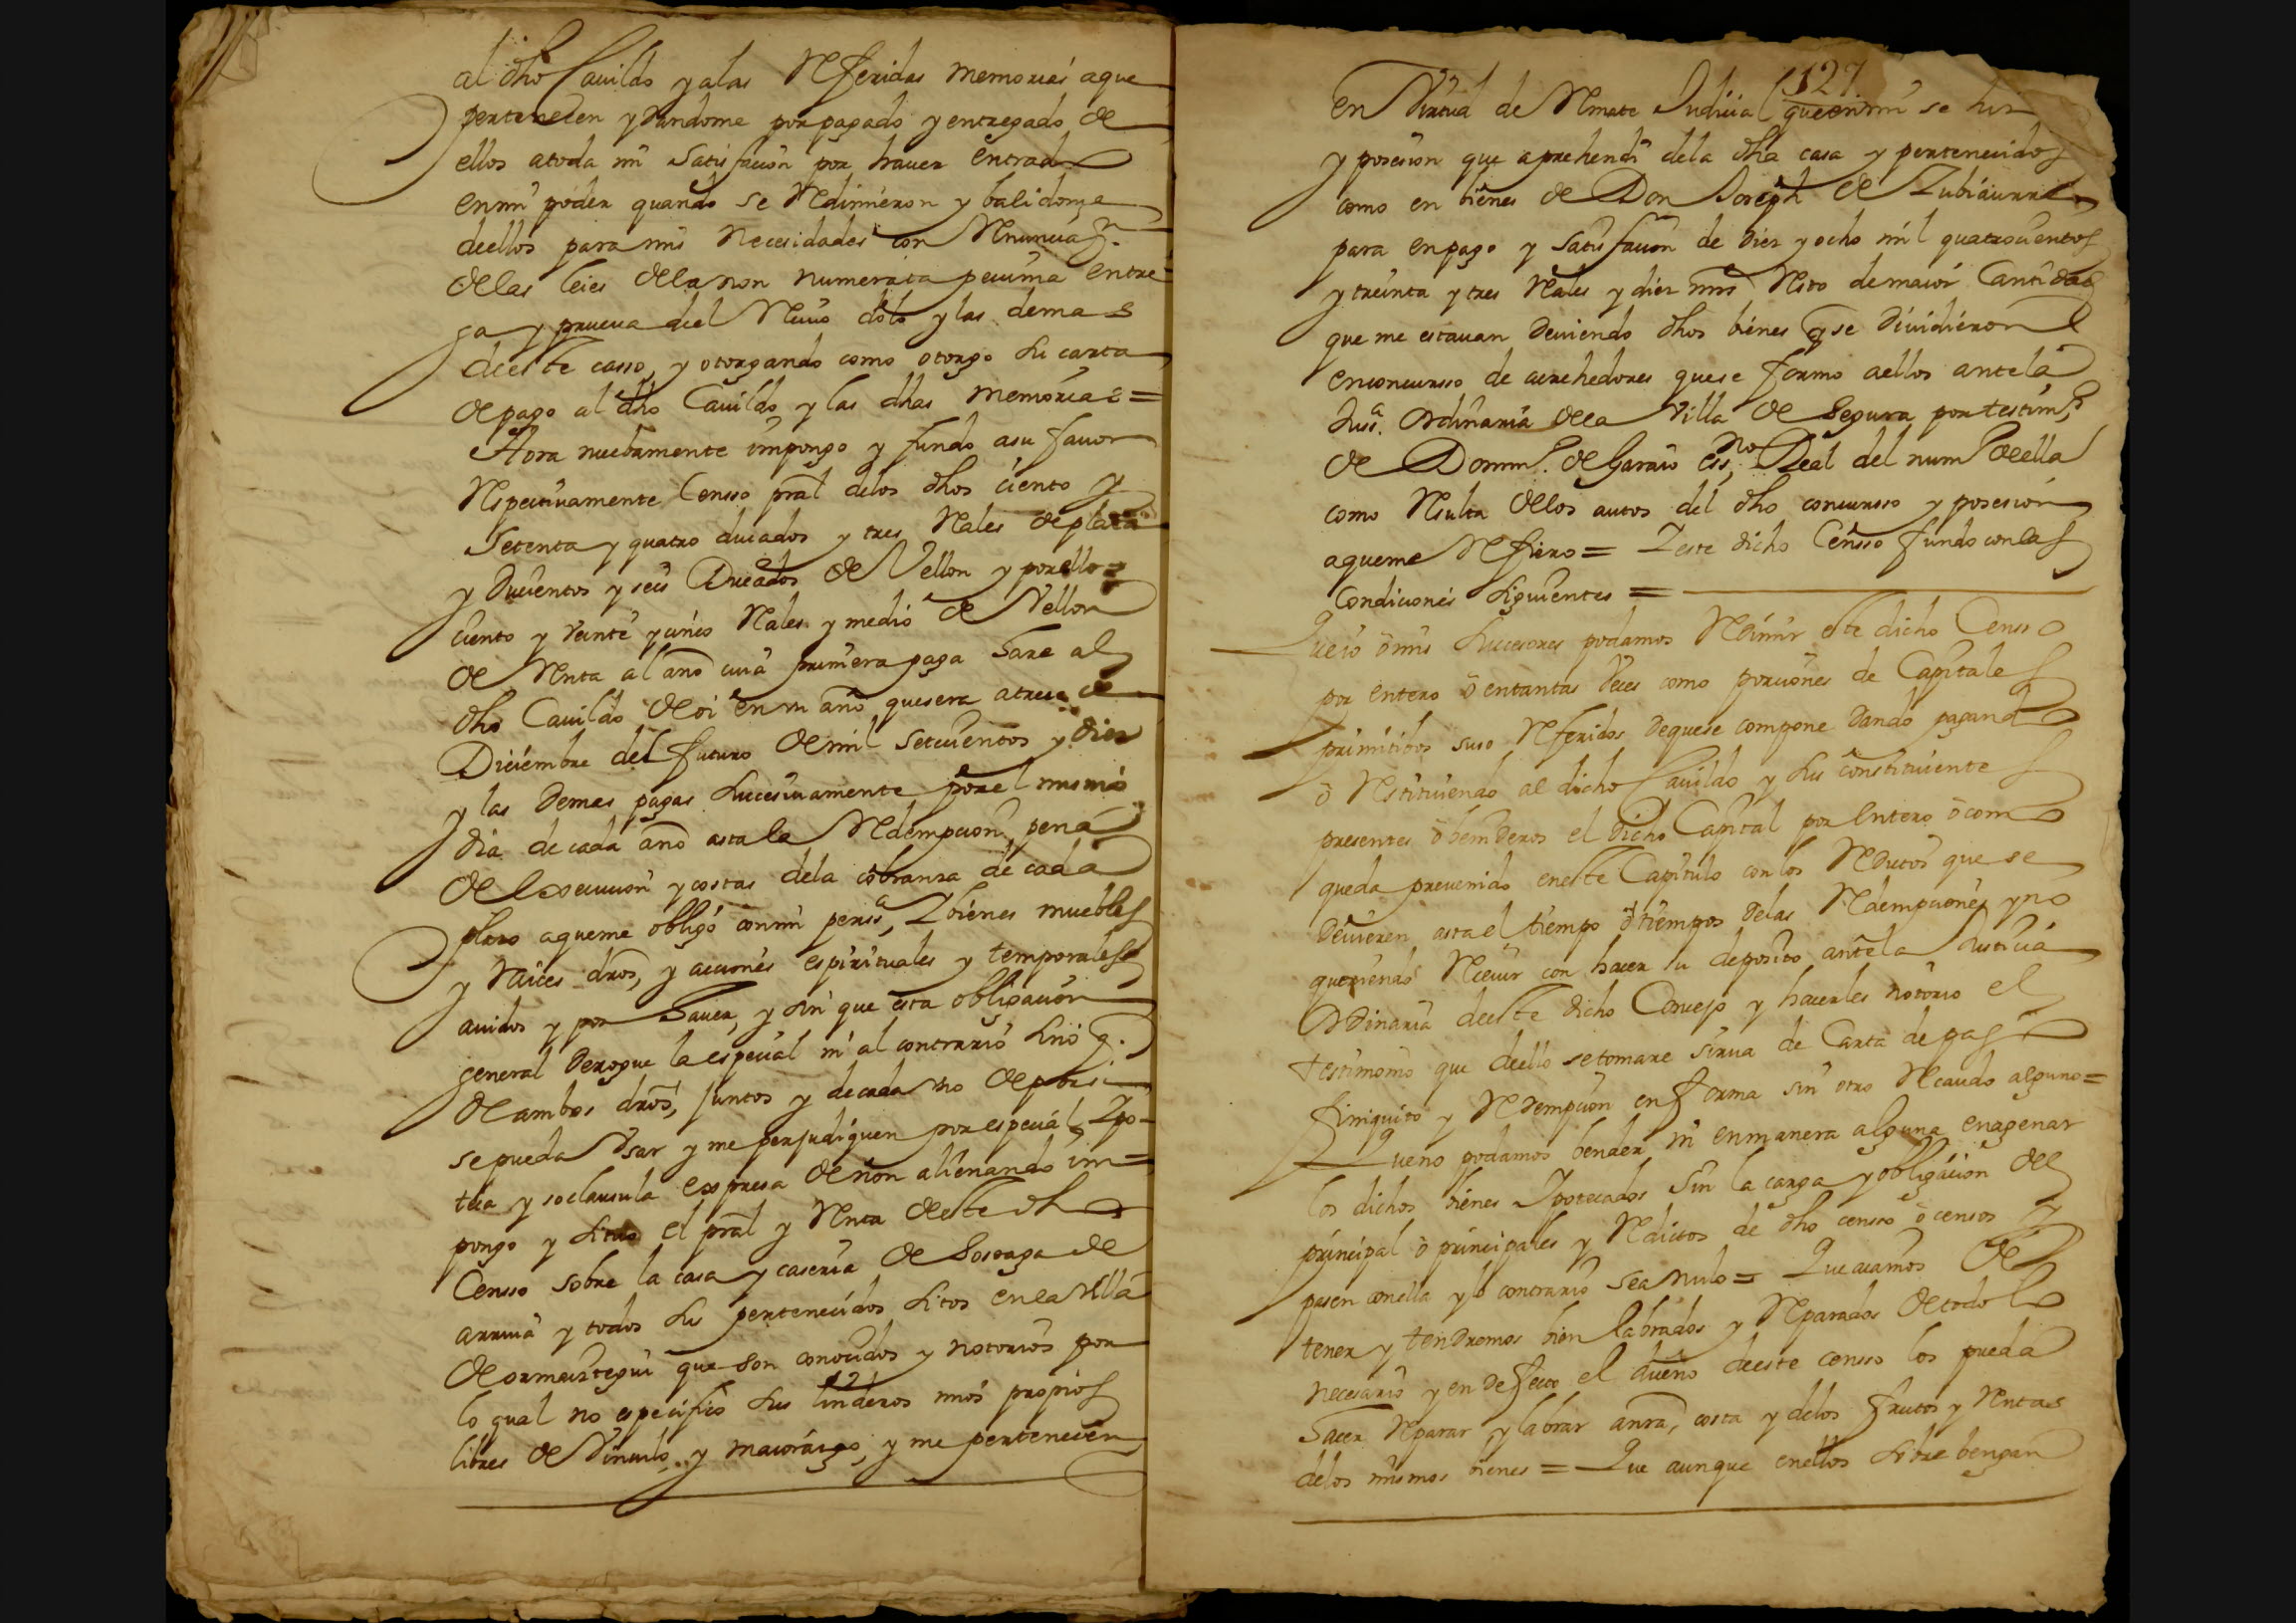 al dho Cauildo y alas Referidas memorias aque
pertenecen y dandome por pagado y entregado de
ellos atoda mi satisfacion por hauer entrado
en mi poder quando se Redimieron y balidome
deellos para mis necesidades con Renunciaz.on
de las leies de la non numerata pecunia entre
ga y prueua del Reciuo dolo y las demas
deeste casso, y otorgando como otorgo su carta
de pago al dho Cauildo y las dhas memorias =
Aora nuebamente impongo y fundo asu fauor
Respectiuamente Censso pral delos dhos ciento y
setenta y quatro ducados y tres Reales de plata
y Ducientos y seis Ducados de Vellon y por ello =
ciento y veinte y cinco Reales y medio de Vellon
de Renta al año cuia primera paga hare al
dho Cauildo de oi en un año que sera a trece de
Diciembre del futuro de mil setecientos y diez
y las demas pagas sucesiuamente por el mismo
dia de cada año asta la Redempcion, pena
de execucion y costas dela cobranza de cada
plazo aqueme obligo con mi perss.a, Y bienes muebles
y Raices dros, y acciones espirituales y temporales
auidos y por hauer, y sin que esta obligacion
general derogue la especial ni al contrario sino q.
de ambos dros, juntos y de cada uno de por si
se pueda Vsar y me perjudiquen por especial Ypo-
teca y so clausula expresa de non alienando im=
pongo y situo el pral y Renta de este dho
Censso sobre la casa y caseria de de
arriua y todos sus pertenecidos sitos en la Villa
de ormaiztegui que son conocidos y notorios por
lo qual no especifico sus linderos mios propios
libres de Vinculo y maiorazgo, y me pertenecen
127
en Virtud de Remate Judicial que en mi se hizo
y posesion que aprehendi dela dha casa y pertenecidos
como en bienes de Don Joseph de Zubiaurre
para en pago y satisfacion de diez y ocho mil quatrocientos
y treinta y tres Reales y diez mrs Resto de maior Cantidad
que me estauan deuiendo dhos bienes q se diuidieron
en concursso de acrehedores que se formo aellos ante la
Juss.a Ordinaria de la Villa de Segura por testim.o
de Domin.o de Garaio ess.no Real del num.o de ella
como Resulta de los autos del dho concursso y posesion
aqueme Refiero = Y este dicho Censso fundo con las
Condiciones siguientes =
Que io o mis sucesores podamos Redimir este dicho Censso
por entero o en tantas veces como porciones de Capitales
primitibos suso Referidos de que se compone dando pagando
o Restituiendo al dicho Cauildo y sus constituientes
presentes o benideros el dicho Capital por entero o como
queda preuenido en este Capitulo con los Reditos que se
deuieren asta el tiempo o tiempos de las Redempciones y no
queriendo Receuir con hacer su deposito ante la Justicia
Ordinaria deeste dicho Concejo y hacerles notorio el
testimonio que deello se tomare sirua de Carta de pago
finiquito y Redempcion en forma sin otro Recaudo alguno =
Que no podamos bender ni en manera alguna enagenar
los dichos bienes Ypotecados sin la carga y obligacion del
principal o principales y Reditos de dho censso o censos y
pasen con ella y lo contrario sea nulo = Que aiamos de
tener y tendremos bien labrados y Reparados de todo lo
necesario y en defecto el dueño deeste censso los pueda
hacer Reparar y labrar a nra, costa y delos frutos y Rentas
delos mismos bienes = Que aunque en ellos sobre bengan